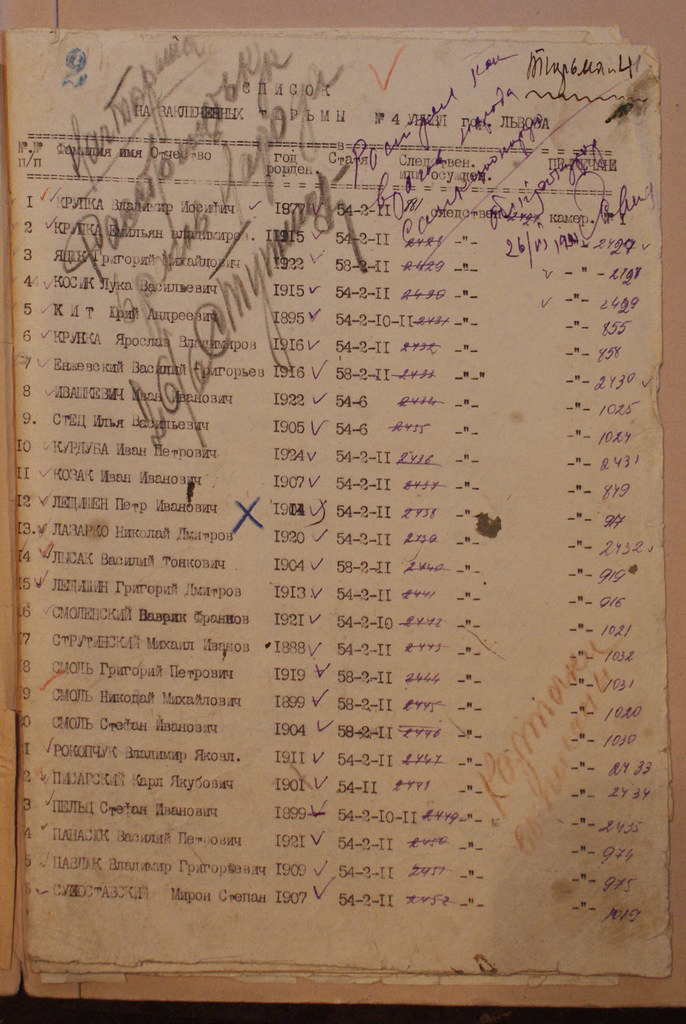 2
Тюрьма № 4
СПИСОК
НА ЗАКЛЮЧЕННЫХ ТЮРЬМЫ № 4 УНКВД гор. ЛЬВОВА
Расстрелян как
врага народа
26/VI 1941
№.№ п/п Фамилия имя Отчество год рожден. Статья Следствен. или осужден. ПРИМЕЧАНИЕ
1 КРУПКА Владимир Иосипович 1877 54-2-11 следствен. камер. № 1
2 КРУПКА Емильян Владимиров. 1915 54-2-11 2428 -"- -"- 2427
3 ЯЦИК Григорий Михайлович 1922 58-2-11 2429 -"- -"- 2428
4 КОСИК Лука Васильевич 1915 54-2-11 2430 -"- -"- 2429
5 КИТ Юрий Андреевич 1895 54-2-10-11 2431 -"- -"- 855
6 КРУПКА Ярослав Владимиров 1916 54-2-11 2432 -"- -"- 858
7 Енжевский Василий Григорьев 1916 58-2-11 2433 -"-" -"- 2430
8 ИВАШКЕВИЧ Иван Иванович 1922 54-6 2434 -"- -"- 1025
9. СТЕЦ Илья Васильевич 1905 54-6 2435 -"- -"- 1024
10 КУРДУБА Иван Петрович 1924 54-2-11 2436 -"- -"- 2431
11 КОЗАК Иван Иванович 1907 54-2-11 2437 -"- -"- 849
12 ЛЕЦИШЕН Петр Иванович 54-2-11 2438 -"- -"- 917
13. ЛАЗАРКО Николай Дмитров 1920 54-2-11 2439 -"- -"- 2432
14 ЛЫСАК Василий Тонкович 1904 58-2-11 2440 -"- -"- 919
15 ЛЕЦИШИН Григорий Дмитров 1913 54-2-11 2441 -"- -"- 916
6 СМОЛЕНСКИЙ Ваврик Франков 1921 54-2-10 2442 -"- -"- 1021
7 СТРУТИНСКИЙ Михаил Иванов 1888 54-2-11 2443 -"- -"- 1032
8 СМОЛЬ Григорий Петрович 1919 58-2-11 2444 -"- -"- 1031
9 СМОЛЬ Николай Михайлович 1899 58-2-11 2445 -"- -"- 1020
0 СМОЛЬ Стефан Иванович 1904 58-2-11 2446 -"- -"- 1030
1 РОКОПЧУК Владимир Яковл. 1911 54-2-11 2447 -"- -"- 2433
2 ПИСАРСКИЙ Карл Якубович 1901 54-11 2448 -"- -"- 2434
3 ПЕЛЬЦ Стефан Иванович 1899 54-2-10-11 2449 -"- -"- 2435
4 ПАНАСЮК Василий Петрович 1921 54-2-11 2450 -"- -"- 974
5 ПАВЛЯК Владимир Григорьевич 1909 54-2-11 2451 -"- -"- 975
6 СУХОСТАВСКИЙ Мирон Степан 1907 54-2-11 2452 -"- -"- 1019